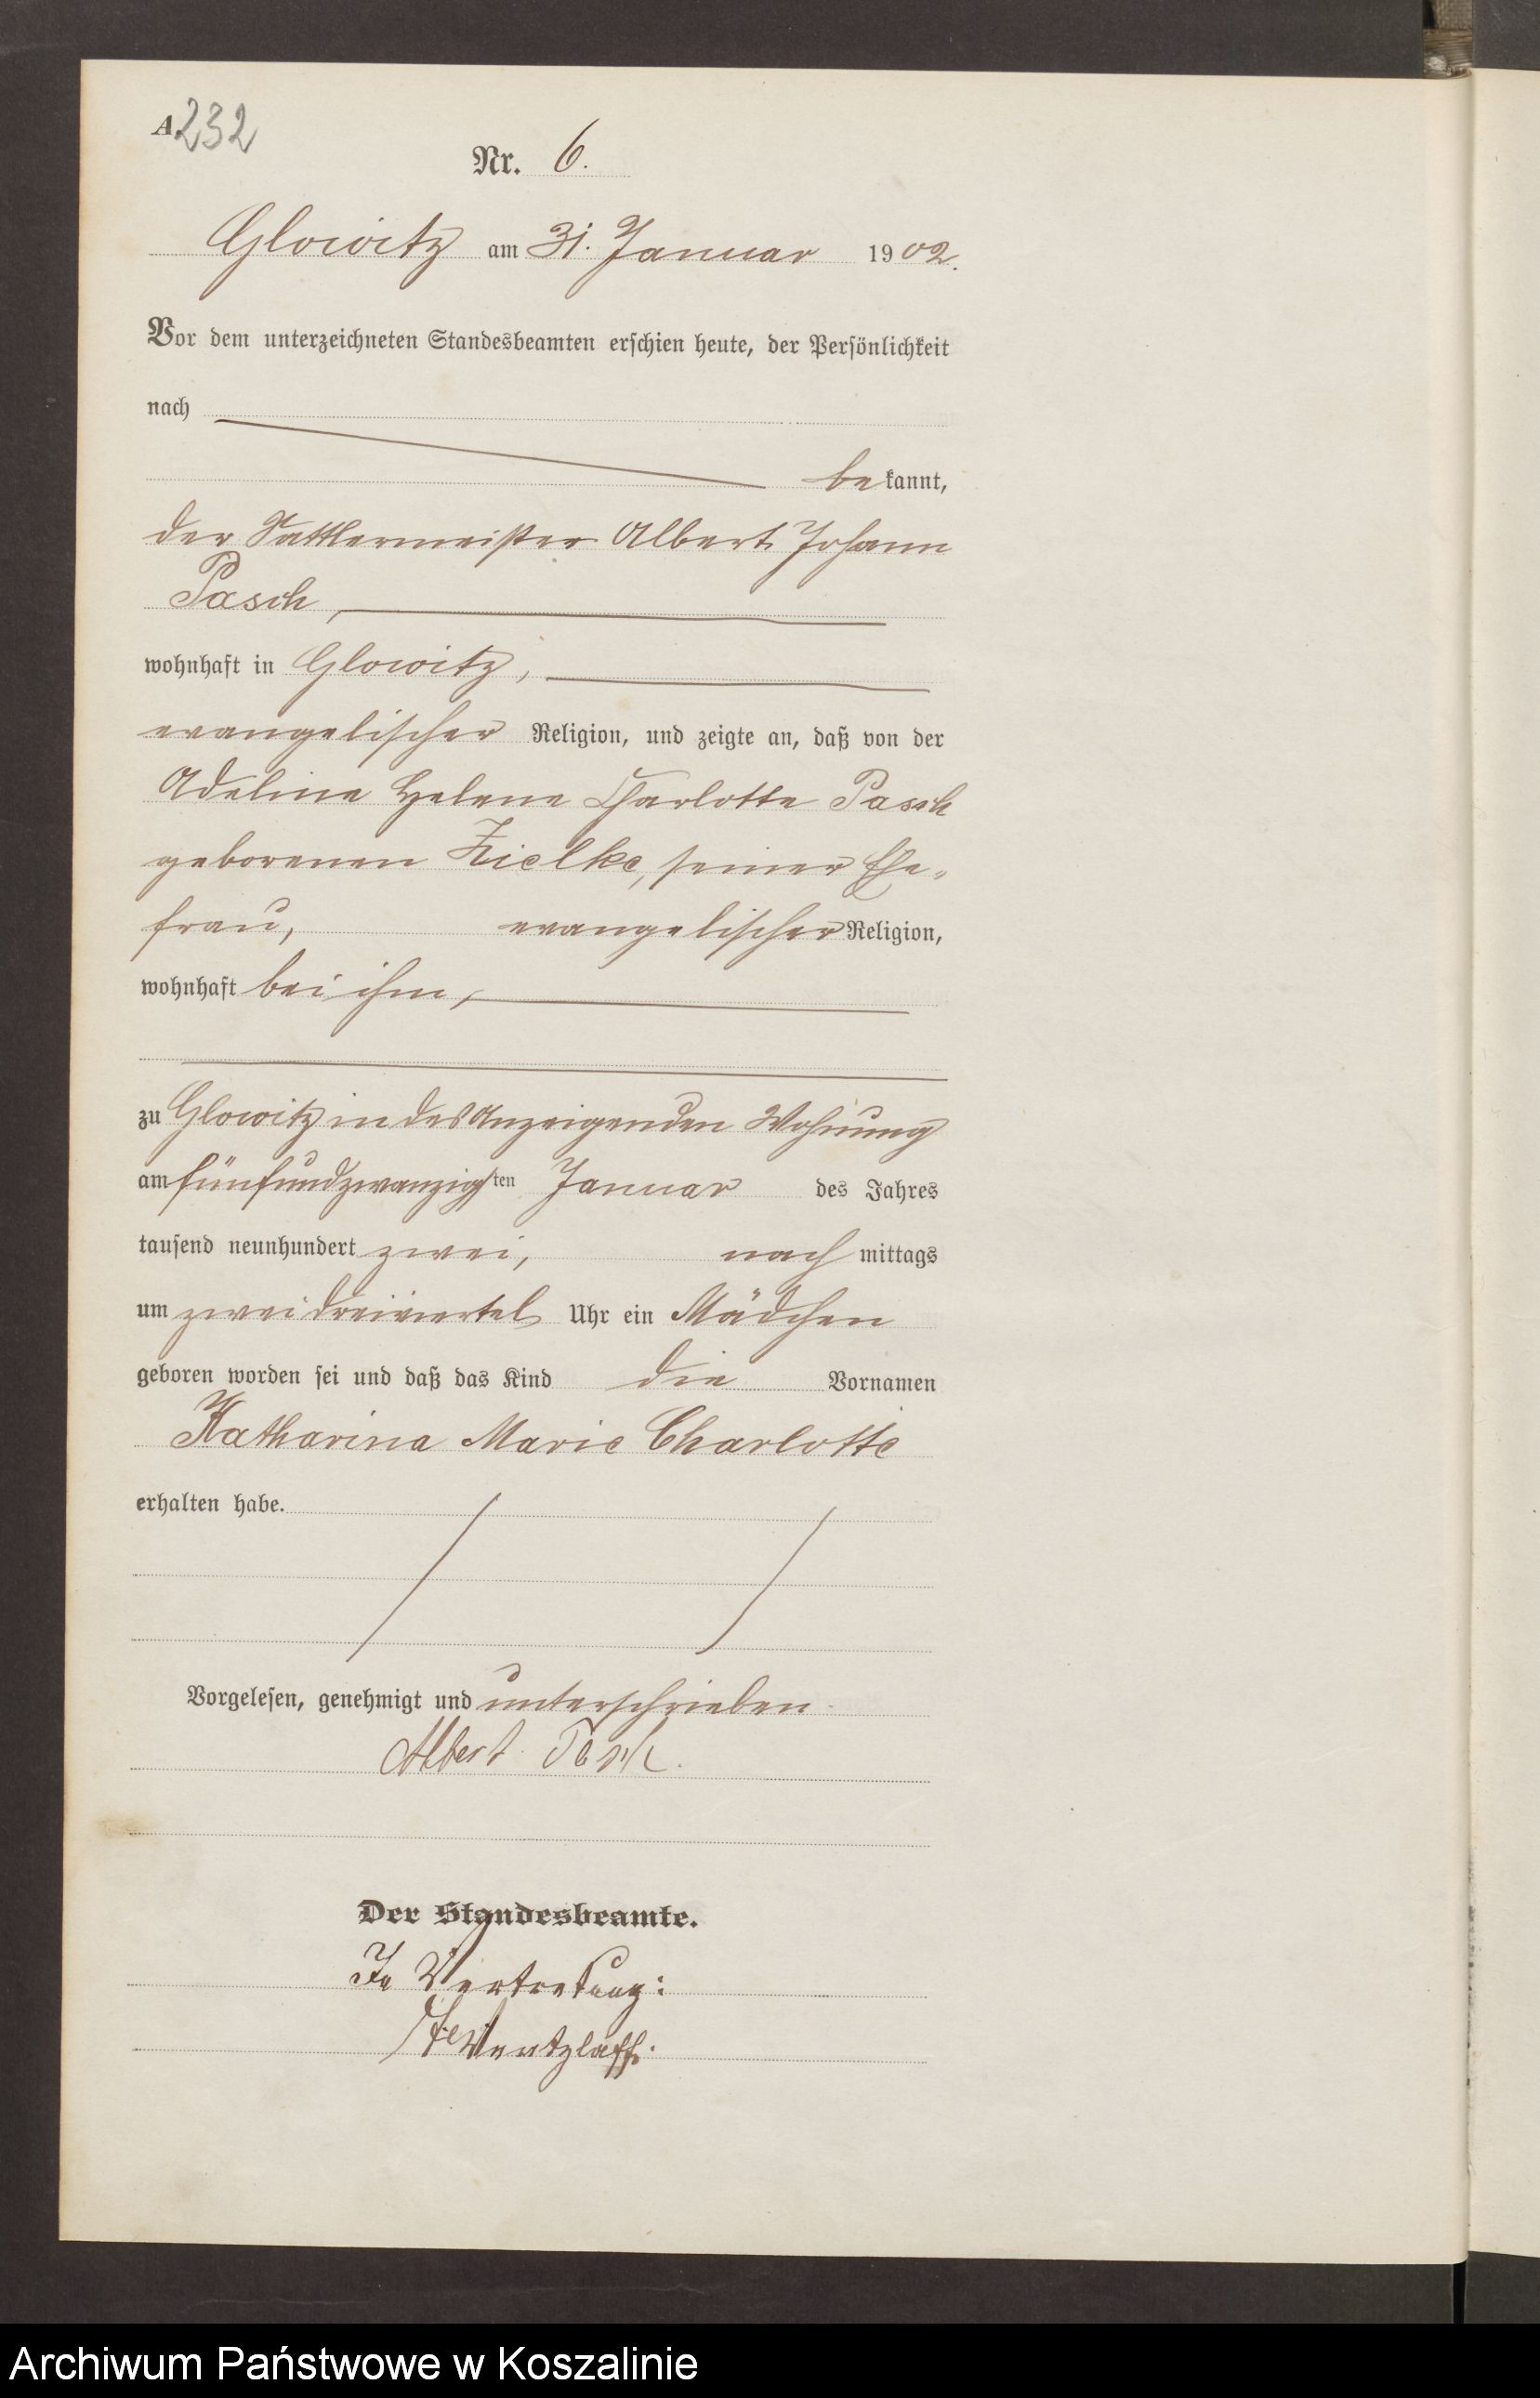 A 232
Nr. 6.
Glowitz am 31. Januar 1902.
Vor dem unterzeichneten Standesbeamten erschien heute, der Persönlichkeit
nach
bekannt,
der Sattlermeister Albert Johann
Pasch,
wohnhaft in Glowitz,
evangelischer Religion, und zeigte an, daß von der
Adeline Helene Charlotte Pasch
geborenen Zielke, seiner Ehe-
frau, evangelischer Religion,
wohnhaft bei ihm,
zu Glowitz in des Anzeigenden Wohnung
am fünfundzwanzigsten Januar des Jahres
tausend neunhundert zwei, nachmittags
um zweidreiviertel Uhr ein Mädchen
geboren worden sei und daß das Kind die Vornamen
Katharina Marie Charlotte
erhalten habe.
Vorgelesen, genehmigt und unterschrieben
Albert Pasch.
Der Standesbeamte.
In Vertretung:
Archiwum Państwowe w Koszalinie